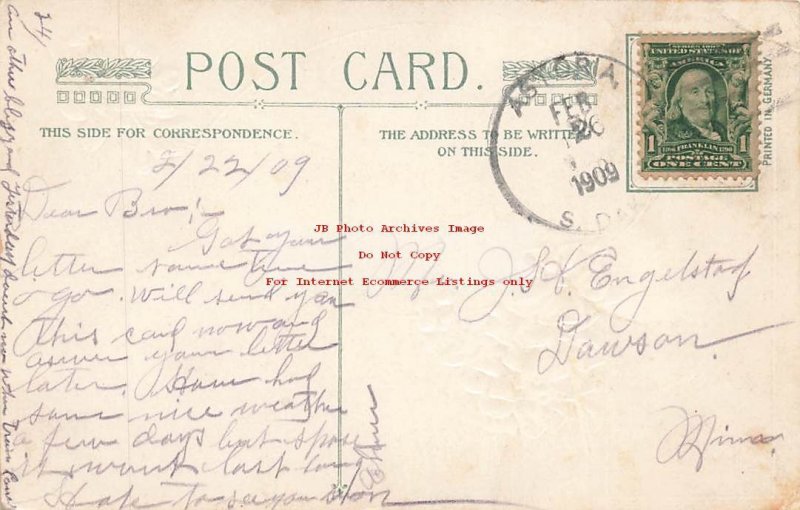 POST CARD.
THIS SIDE FOR CORRESPONDENCE.
THE ADDRESS TO BE WRITTEN
ON THIS SIDE.
ASTORIA,
FEB
26
1909
S. DAK
SERIES 1902
UNITED STATES OF
AMERICA
1 1
FRANKLIN
POSTAGE
ONE CENT
PRINTED IN GERMANY
2/22/09
Dear Bro:-
Got your
letter some time
ago. Will send you
this card now and
answer your letter
later. Have had
some nice weather
a few days but spose
it wount last long
Hope to see you soon
Mr. J.K. Engelstad
Dawson.
Minn.
24/
an other blizzard yesterday doesnt no when Train
JB Photo Archives Image
Do Not Copy
For Internet Ecommerce Listings only